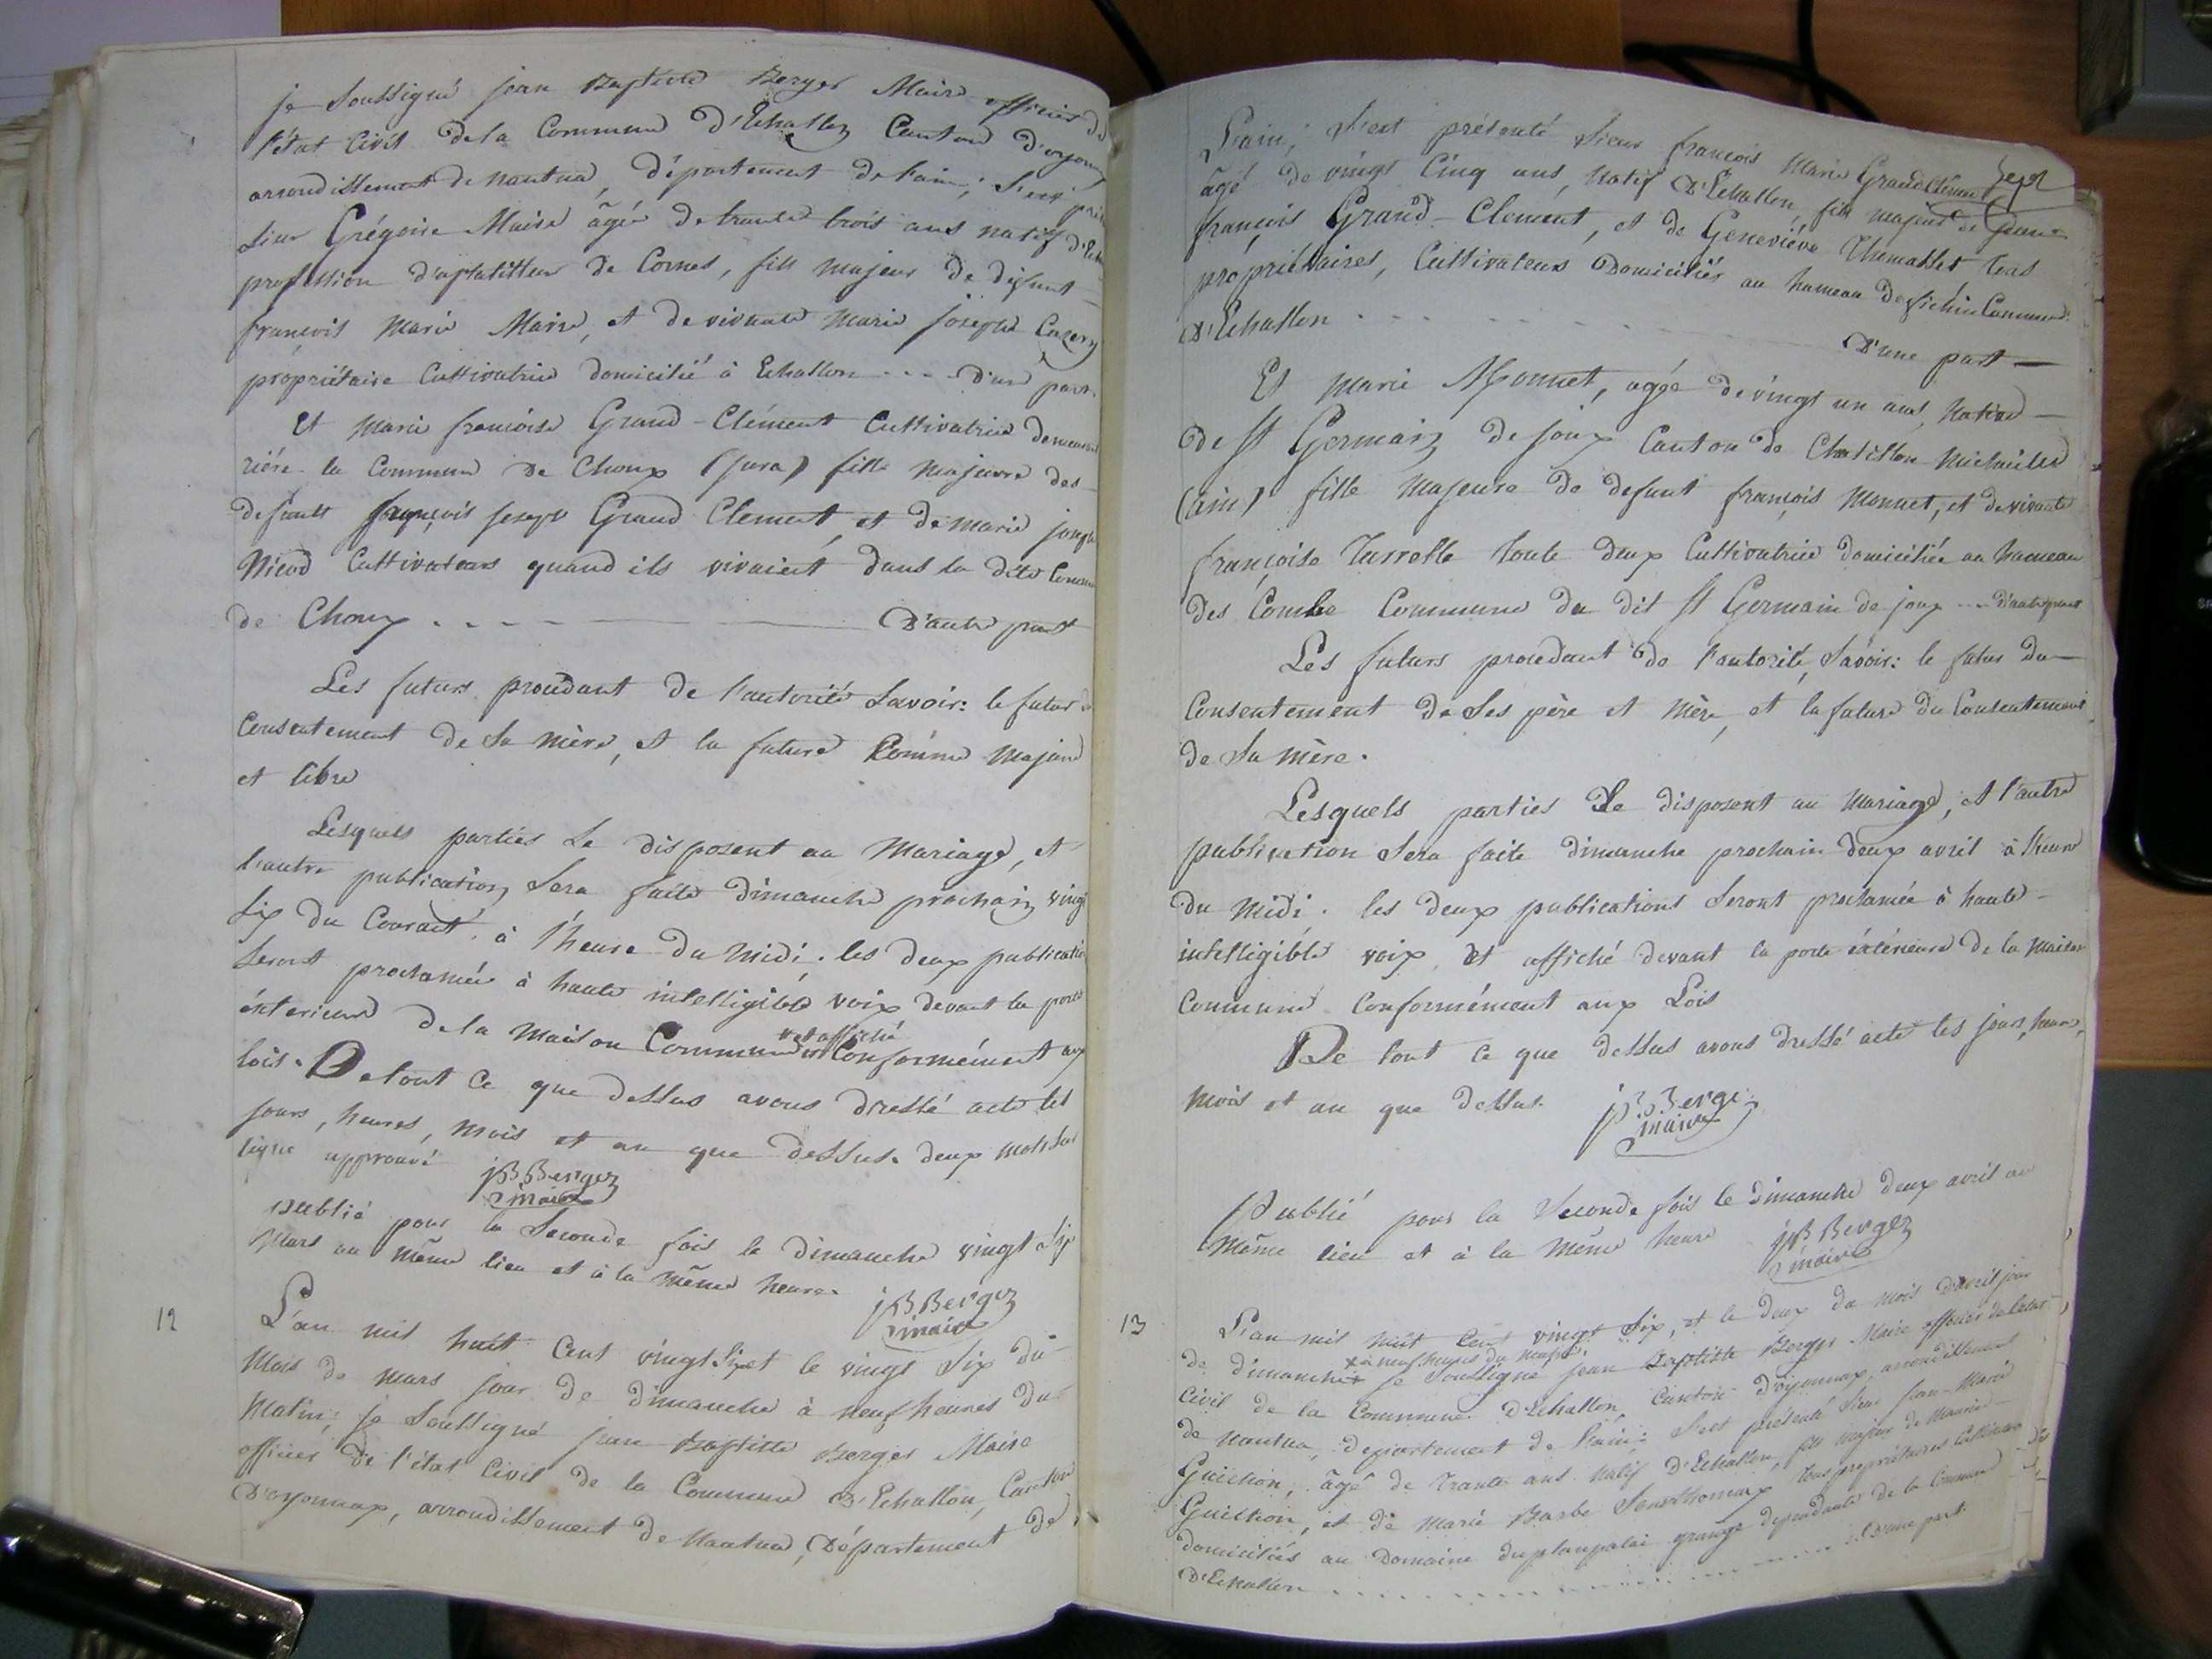 je soussigné jean Baptiste Berger Maire officier de
l'état Civil de la Commune d'Echallon Canton d'oyonn
arrondissement de nantua, département de l'ain; s'est prés
sieur Grégoire Maire âgé de trante trois ans natif d'Echa
profession d'aplatisseur de Cornes, fils majeur de défunt
françois marie Maire, et de vivante marie joseph
propriétaire Cultivatrice domicilié à Echallon - - - d'une part.
Et marie françoise Grand-Clément Cultivatrice demeurant
rière la Commune de Choux (jura) fille majeure des
défunts françois joseph Grand Clement, et de marie joseph
Nicod Cultivateurs quand ils vivaient dans la dite Commun
de Choux . . . - - D'autre part
Les futurs procédant de l'autorité savoir: le futur du
Consentement de sa mère, et la future Comme majeure
et libre
Lesquels parties se disposent au Mariage, et
l'autre publication sera faite dimanche prochain vingt
six du Courant à l'heure du midi. les deux publication
seront proclamée à haute intelligible voix devant la porte
éxterieure de la Maison Commune et affiché Conformément aux
lois. De tout ce que dessus avons dressé acte les
jours, heures, mois et an que dessus. deux mots sur
ligne approuvé
JB Berger
maire
publié pour la seconde fois le dimanche vingt six
Mars au même lieu et à la même heure.
JB Berger
maire
12
L'an mil huit Cent vingt six et le vingt six du
Mois de mars jour de dimanche à neuf heures du
Matin; je soussigné jean Baptiste Berger Maire
officier de l'état Civil de la Commune d'Echallon, Canton
D'oyonnax, arrondissement de Nantua, Département de
Sept
L'ain; s'est présenté sieur françois marie Grand Clément
âgé de vingt Cinq ans, natif d'Echallon, fils majeur de
françois Grand-Clement, et de Geneviéve Thomasset tous
propriétaires, Cultivateurs domiciliés au hameau de Commune
D'Echallon . . . - - - D'une part
Et marie Monnet, agée de vingt un ans, native
de St Germain de joux Canton de Chatillon michaille
(ain) fille majeure de defunt françois Monnet, et de vivante
françoise toute deux Cultivatrice domiciliée au hameau
des Combe Commune du dit St Germain de joux - - - d'autre part
Les futurs procedant de l'autorité, savoir: le futur du
Consentement de ses père et mère, et la future du Consentement
de sa mère.
Lesquels parties se disposent au mariage, et l'autre
publication sera faite dimanche prochain deux avril à l'heure
du midi. les deux publications seront proclamée à haute
intelligible voix et affiché devant la porte éxtérieure de la maison
Commune Conformément aux Lois
De tout ce que dessus avons dressé acte les jours, heures,
mois et an que dessus.
JB Berger
maire
Publié pour la seconde fois le dimanche deux avril au
même lieu et à la même heure
JB Berger
maire
13
L'an mil huit Cent vingt six, et le deux du mois d'avril jour
à neuf heures du matin
de dimanche je soussigné jean Baptiste Berger Maire officier de l'etat
Civil de la Commune d'Echallon, Canton d'oyonnax, arrondissement
de Nantua, département de l'ain; s'est présenté sieur jean-Marie
Guichon, âgé de trante ans natif d'Echallon, fils majeur de Maurice
Guichon, et de marie Barbe tous propriétaires Cultivateurs
domiciliés au Domaine grange dépendante de la Commune
D'Echallon . . . D'une part.